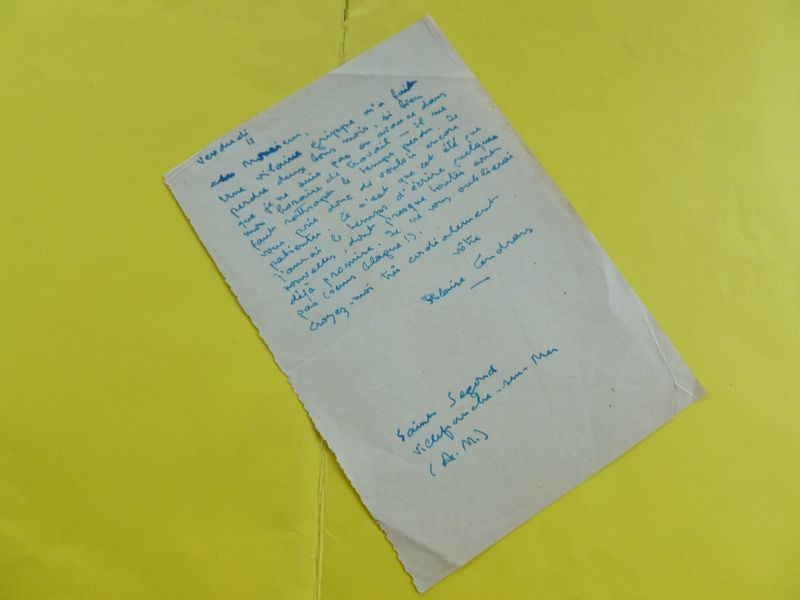 Vendredi
11
Monsieur,
Une vilaine grippe m'a fait
perdre deux bons mois, si bien
que je ne suis pas en avance dans
mon horaire de travail — il me
faut rattraper le temps perdu. Je
vous prie donc de vouloir encore
patienter. Ce n'est que cet été que
j'aurai le temps d'écrire quelques
nouvelles dont presque toutes sont
déjà promises. Je ne vous oublierai
pas (sans blague !).
Croyez-moi très cordialement
vôtre
Blaise Cendrars
Saint Segond
Villefranche-sur-Mer
(A.M.)